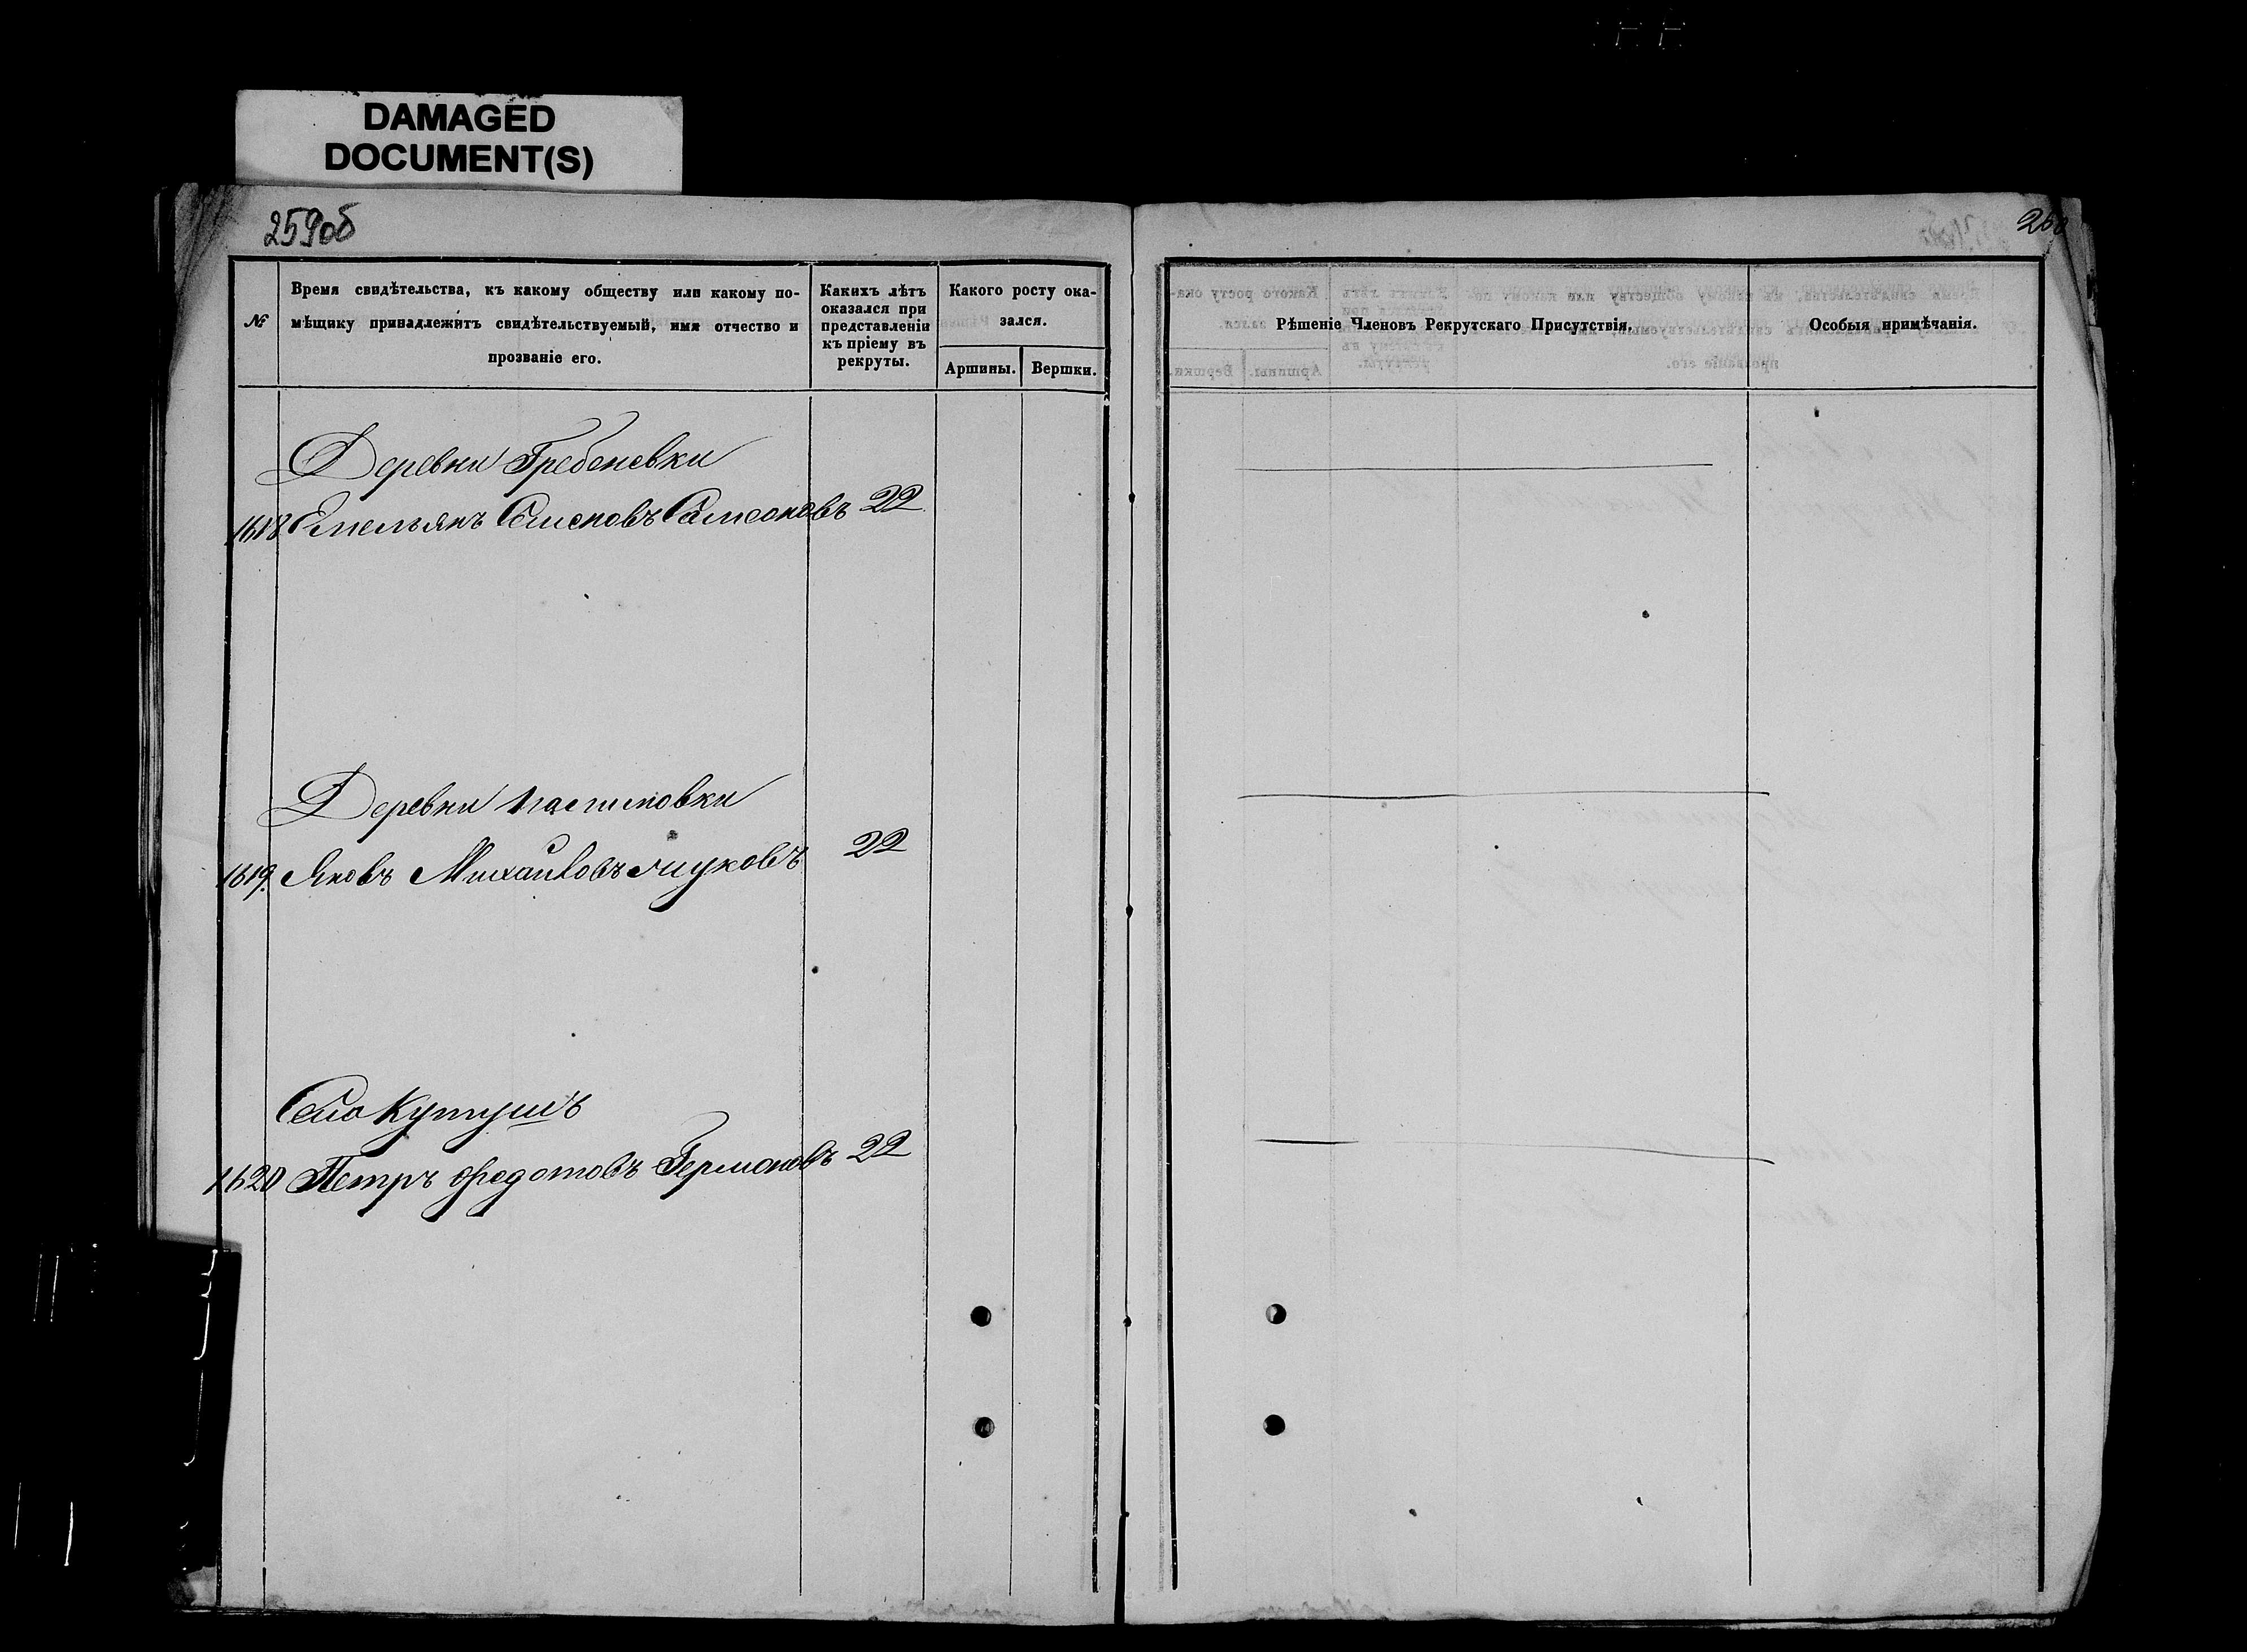 DAMAGED
DOCUMENT(S)
259об
№
Время свидѣтельства, къ какому обществу или какому по-
мѣщику принадлежитъ свидѣтельствуемый, имя отчество и
прозваніе его.
Какихъ лѣтъ
оказался при
представленіи
къ пріему въ
рекруты.
Какого росту ока-
зался.
Аршины.
Вершки.
Деревни Гребеневки
1618 Емельянъ Семеновъ Самсоновъ 22
Деревни
1619. Яковъ Михайловъ 22
Село Кутушъ
1620 Петръ Федотовъ Германовъ 22
260
Рѣшеніе Членовъ Рекрутскаго Присутствія.
Особыя примѣчанія.